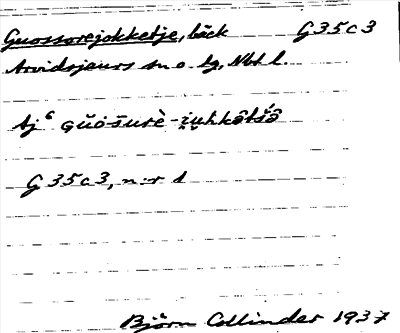 Guossorejokketje, bäck G35c3
Arvidsjaurs sn o. lg, Nbt l.
Aj⁶ gŭo·s̄urè-i̯u̯hkə̂tšə̂
G35c3, n:r 1
Björn Collinder 1937